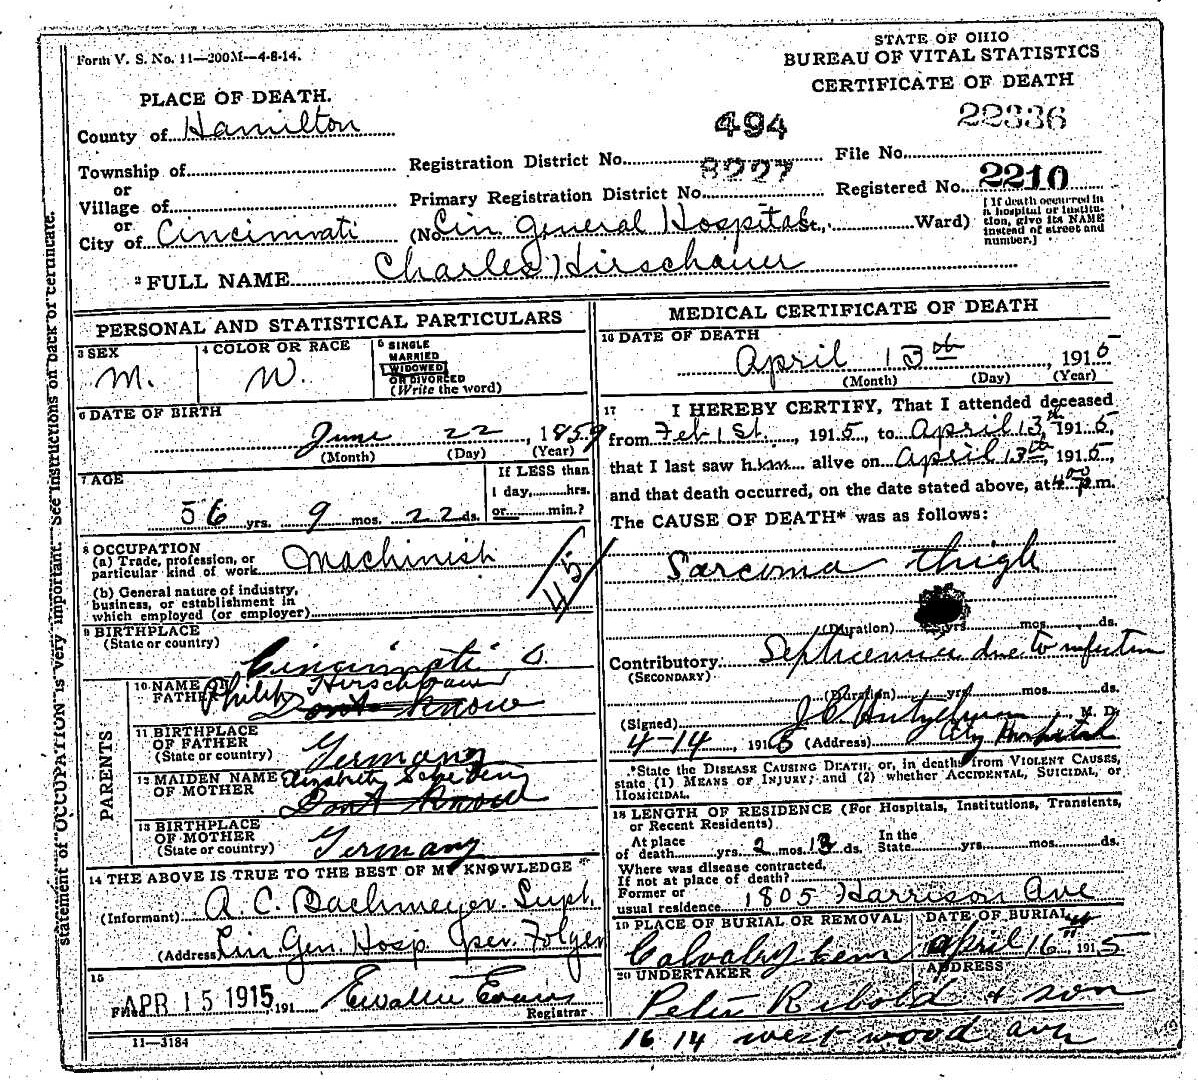 Form V. S. No. 11—200M—4-8-14.
STATE OF OHIO
BUREAU OF VITAL STATISTICS
CERTIFICATE OF DEATH
PLACE OF DEATH.
County of Hamilton
494
22336
Township of
Registration District No.
File No.
or
8227
2210
Village of
Primary Registration District No.
Registered No.
or
City of Cincinnati
(No. Cin General Hospital St., Ward)
[If death occurred in a hospital or institution, give its NAME instead of street and number.]
2 FULL NAME Charles Hirschauer
PERSONAL AND STATISTICAL PARTICULARS
3 SEX
M.
4 COLOR OR RACE
W.
5 SINGLE
MARRIED
WIDOWED
OR DIVORCED
(Write the word)
6 DATE OF BIRTH
June 22, 1859
(Month) (Day) (Year)
7 AGE
56 yrs. 9 mos. 22 ds.
If LESS than
1 day, hrs.
or min.?
8 OCCUPATION
(a) Trade, profession, or
particular kind of work Machinist
(b) General nature of industry,
business, or establishment in
which employed (or employer)
9 BIRTHPLACE
(State or country)
Cincinnati O.
PARENTS
10 NAME OF
FATHER
Philip Hirschauer
Dont Know
11 BIRTHPLACE
OF FATHER
(State or country)
Germany
12 MAIDEN NAME
OF MOTHER
Elizabeth
Dont Know
13 BIRTHPLACE
OF MOTHER
(State or country)
Germany
14 THE ABOVE IS TRUE TO THE BEST OF MY KNOWLEDGE
(Informant) A. C. Bachmeyer Supt.
(Address) Cin Gen. Hosp. per. Folger
15
Filed APR 15 1915, 191
Evans
Registrar.
11—3184
MEDICAL CERTIFICATE OF DEATH
16 DATE OF DEATH
April 13th, 1915
(Month) (Day) (Year)
17 I HEREBY CERTIFY, That I attended deceased
from Feb 1st., 1915, to April 13th 1915,
that I last saw him alive on April 13th, 1915,
and that death occurred, on the date stated above, at 4 00 p.m.
The CAUSE OF DEATH* was as follows:
Sarcoma thigh
(Duration) yrs. mos. ds.
Contributory Septicemia due to infection
(SECONDARY)
(Duration) yrs. mos. ds.
(Signed) M. D.
4-14, 1915 (Address) City Hospital
*State the DISEASE CAUSING DEATH, or, in deaths from VIOLENT CAUSES,
state (1) MEANS OF INJURY; and (2) whether ACCIDENTAL, SUICIDAL, or
HOMICIDAL.
18 LENGTH OF RESIDENCE (For Hospitals, Institutions, Transients,
or Recent Residents)
At place
of death yrs. 2 mos. 13 ds.
In the
State yrs. mos. ds.
Where was disease contracted,
If not at place of death?
Former or
usual residence 1805 Harrison Ave
19 PLACE OF BURIAL OR REMOVAL
Calvalry Cem
DATE OF BURIAL
April 16th 1915
20 UNDERTAKER
ADDRESS
Peter Rebold & Son
1614 west wood ave
statement of OCCUPATION is very important. See instructions on back of certificate.